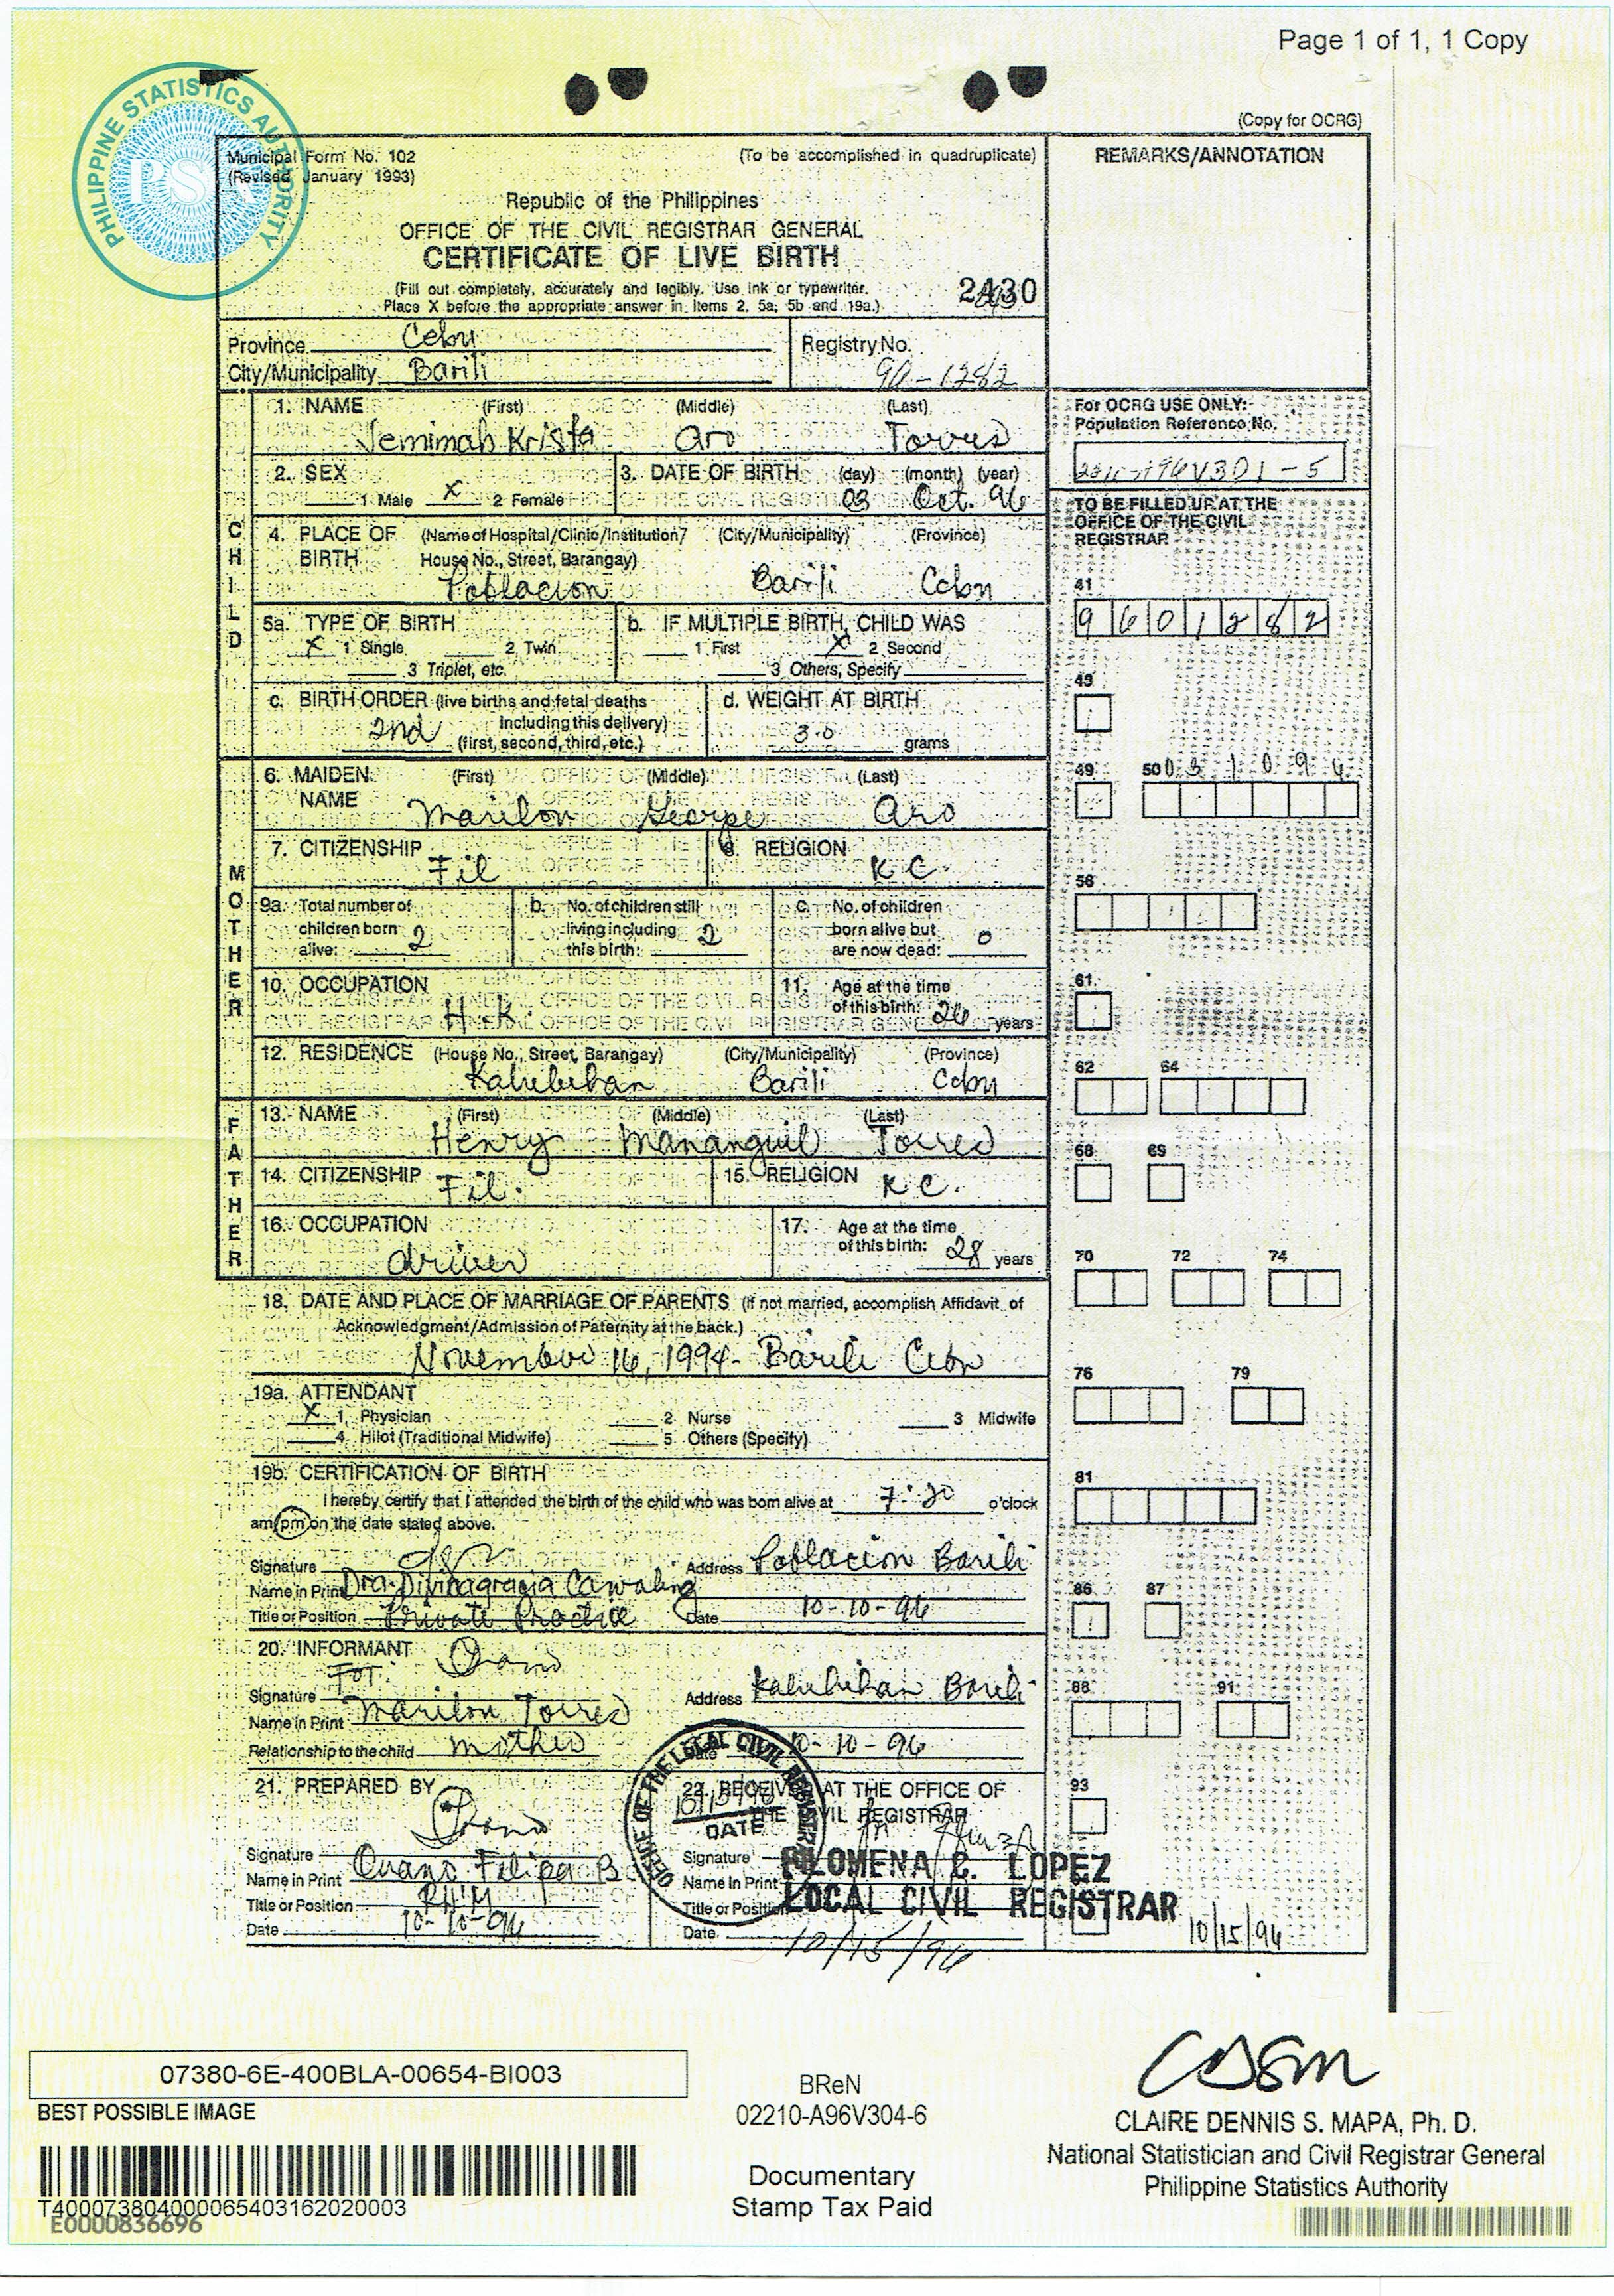 Page 1 of 1, 1 Copy
PHILIPPINE STATISTICS AUTHORITY
PSA
(Copy for OCRG)
Municipal Form No. 102
(Revised January 1993)
(To be accomplished in quadruplicate)
REMARKS/ANNOTATION
Republic of the Philippines
OFFICE OF THE CIVIL REGISTRAR GENERAL
CERTIFICATE OF LIVE BIRTH
(Fill out completely, accurately and legibly. Use ink or typewriter.
Place X before the appropriate answer in Items 2, 5a, 5b and 19a.)
2430
Province Cebu
City/Municipality Barili
Registry No.
96-1282
CHILD
1. NAME (First) (Middle) (Last)
Jemimah Krista Aro Torres
For OCRG USE ONLY:
Population Reference No.
2. SEX
1 Male X 2 Female
3. DATE OF BIRTH (day) (month) (year)
03 Oct. 96
TO BE FILLED UP AT THE
OFFICE OF THE CIVIL
REGISTRAR
4. PLACE OF BIRTH (Name of Hospital/Clinic/Institution/ (City/Municipality) (Province)
House No., Street, Barangay)
Poblacion Barili Cebu
41
9601282
5a. TYPE OF BIRTH
X 1 Single 2 Twin
3 Triplet, etc.
b. IF MULTIPLE BIRTH, CHILD WAS
1 First X 2 Second
3 Others, Specify
c. BIRTH ORDER (live births and fetal deaths
including this delivery)
2nd (first, second, third, etc.)
d. WEIGHT AT BIRTH
3.0 grams
49
MOTHER
6. MAIDEN NAME (First) (Middle) (Last)
Marilou George Aro
49 50 031094
7. CITIZENSHIP
Fil
8. RELIGION
R C.
56
9a. Total number of
children born
alive: 2
b. No. of children still
living including
this birth: 2
c. No. of children
born alive but
are now dead: 0
10. OCCUPATION
H.K.
11. Age at the time
of this birth: 26 years
61
12. RESIDENCE (House No., Street, Barangay) (City/Municipality) (Province)
Kalubihan Barili Cebu
62 64
FATHER
13. NAME (First) (Middle) (Last)
Henry Mananguil Torres
14. CITIZENSHIP
Fil.
15. RELIGION
R C.
68 69
16. OCCUPATION
driver
17. Age at the time
of this birth: 28 years
70 72 74
18. DATE AND PLACE OF MARRIAGE OF PARENTS (If not married, accomplish Affidavit of
Acknowledgment/Admission of Paternity at the back.)
November 16, 1994- Barili Cebu
76 79
19a. ATTENDANT
X 1 Physician 2 Nurse 3 Midwife
4 Hilot (Traditional Midwife) 5 Others (Specify)
19b. CERTIFICATION OF BIRTH
I hereby certify that I attended the birth of the child who was born alive at 7:20 o'clock
am/pm on the date stated above.
81
Signature Address Poblacion Barili
Name in Print Dra. Divinagracia Cawaling
Title or Position Private Practice Date 10-10-96
86 87
20. INFORMANT
For:
Signature Address Kalubihan Barili
Name in Print Marilou Torres
Relationship to the child mother
Date 10-10-96
88 91
21. PREPARED BY
Signature
Name in Print Ouano Felipa B
Title or Position RHM
Date 10-10-96
22. RECEIVED AT THE OFFICE OF
THE CIVIL REGISTRAR
OFFICE OF THE LOCAL CIVIL REGISTRAR
DATE
93
Signature
Name in Print FILOMENA C. LOPEZ
Title or Position LOCAL CIVIL REGISTRAR
Date 10/15/96
10/15/96
07380-6E-400BLA-00654-BI003
BEST POSSIBLE IMAGE
T400073804000065403162020003
E0000836696
BReN
02210-A96V304-6
Documentary
Stamp Tax Paid
CLAIRE DENNIS S. MAPA, Ph. D.
National Statistician and Civil Registrar General
Philippine Statistics Authority